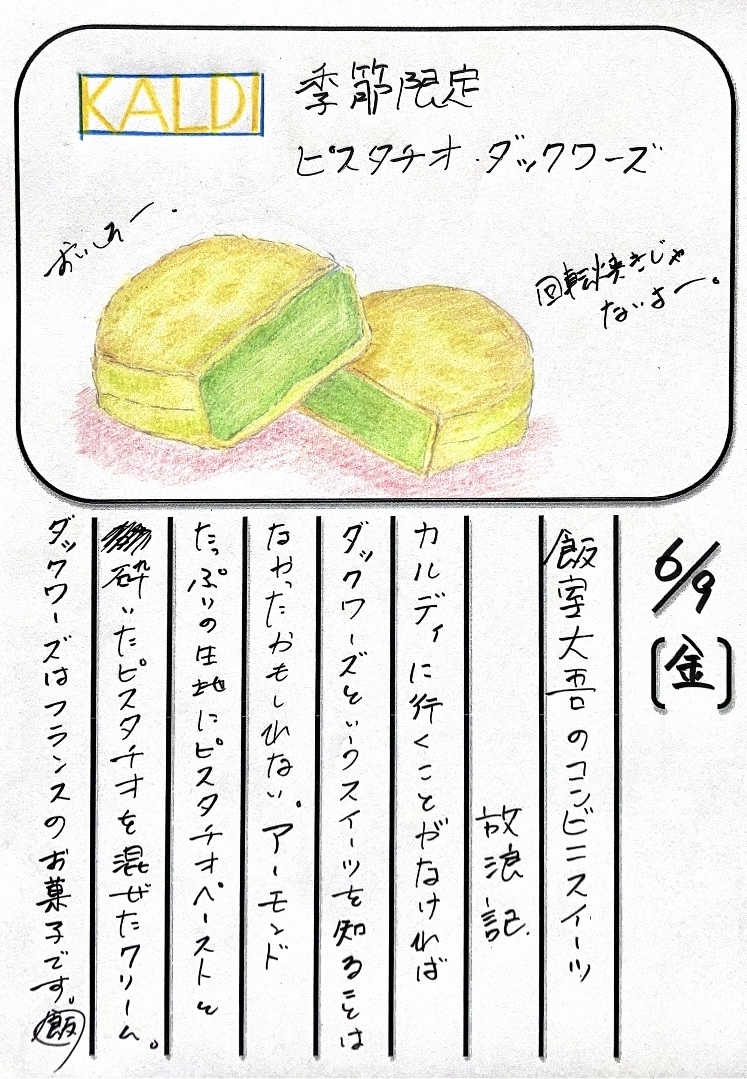 KALDI 季節限定
ピスタチオ・ダックワーズ
おいしそー。
回転焼きじゃ
ないよー。
6/9
(金)
飯室大吾のコンビニスイーツ
放浪記。
カルディに行くことがなければ
ダックワーズというスイーツを知ることは
なかったかもしれない。アーモンド
たっぷりの生地にピスタチオペーストと
砕いたピスタチオを混ぜたクリーム。
ダックワーズはフランスのお菓子です。飯